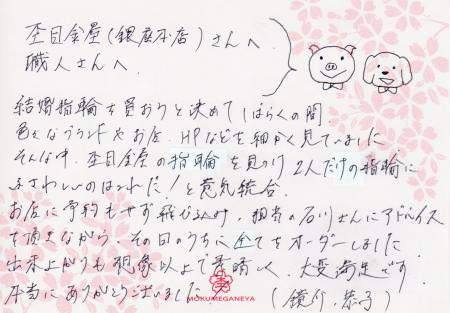 杢目金屋(銀座本店)さんへ
職人さんへ
結婚指輪を買おうと決めてしばらくの間、
色々なブランドやお店、HPなどを細かく見ていました
そんな中、杢目金屋の指輪を見つけ2人だけの指輪に
ふさわしいのはこれだ!と意気統合。
お店に予約もせず飛び込み、担当の石川さんにアドバイス
を頂きながら、その日のうちに全てをオーダーしました
出来上がりも想象以上で素晴しく、大変満足です
本当にありがとうございました。
MOKUMEGANEYA
(鏡介、恭子)